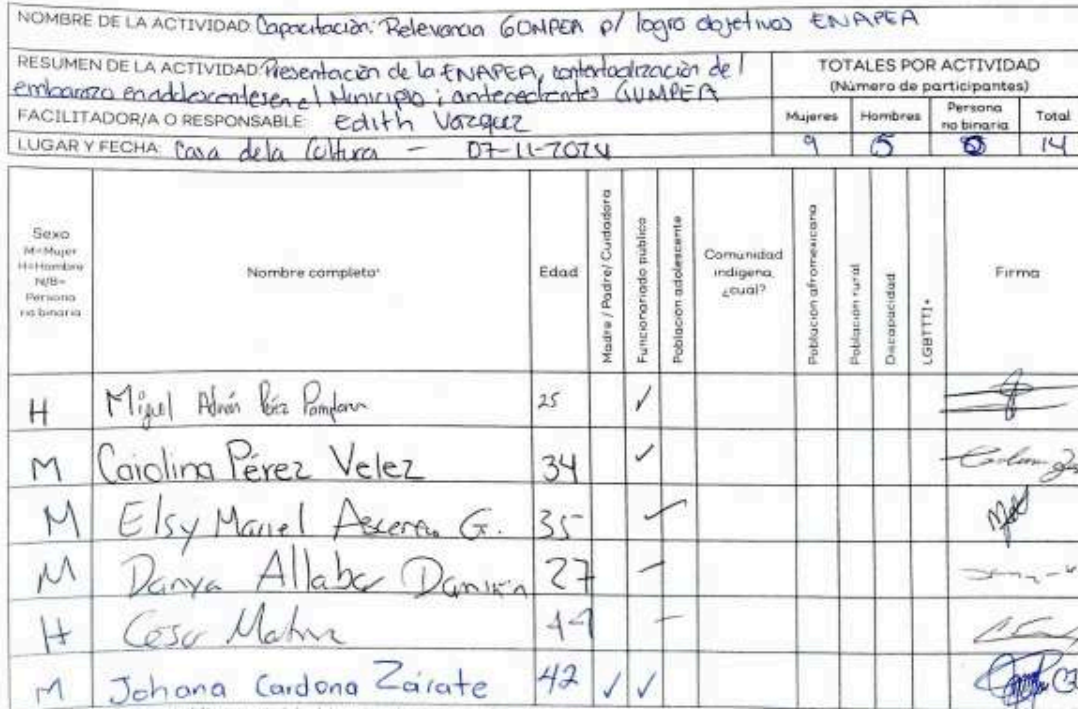 NOMBRE DE LA ACTIVIDAD: Capacitación: Relevancia GUMPEA p/ logro objetivos ENAPEA
RESUMEN DE LA ACTIVIDAD: Presentación de la ENAPEA, contextualización del
embarazo en adolescentes en el Municipio; antecedentes GUMPEA
FACILITADOR/A O RESPONSABLE: edith Vázquez
LUGAR Y FECHA: Casa de la Cultura - 07-11-2024
TOTALES POR ACTIVIDAD
(Número de participantes)
Mujeres Hombres Persona no binaria Total
9 5 0 14
Sexo
M=Mujer
H=Hombre
N/B=
Persona
no binaria
Nombre completo*
Edad
Madre / Padre/ Cuidadora
Funcionariado público
Población adolescente
Comunidad
indígena,
¿cuál?
Población afromexicana
Población rural
Discapacidad
LGBTTTI+
Firma
H Miguel Pérez 25 ✓
M Carolina Pérez Velez 34 ✓
M Elsy Mariel G. 35 ✓
M Danya Damián 27
H 44
M Johana Cardona Zárate 42 ✓ ✓